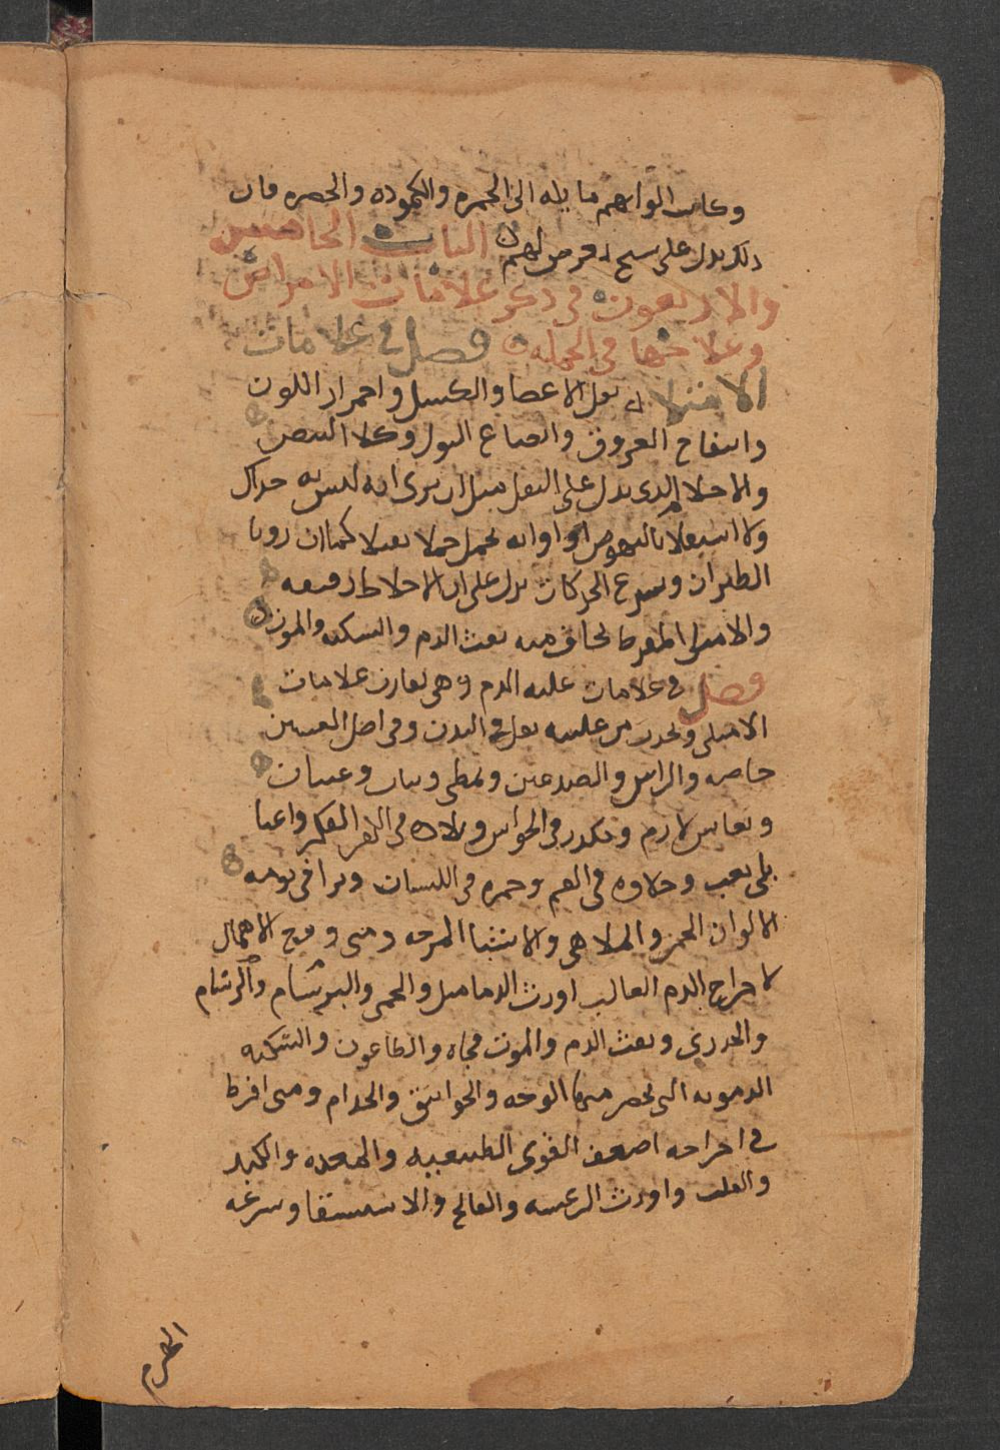 وكانت الوانهم مايله الى الحمره والكموده والخضره فان
ذلك يدل على تشنج يعرض لهم الباب الخامس
والاربعون في ذكر علامات الامراض
وعلاجها في الجمله فصل في علامات
الامتلا ثقل الاعضا والكسل واحمرار اللون
وانتفاخ العروق وانصباغ البول وكلا البصر
والاحلام الذي يدل على الثقل مثل ان يرى انه ليس به حراك
ولا استقلالا بالنهوض او انه يحمل حملا ثقيلا كما ان رويا
الطيران وسرعه الحركات يدل على ان الاخلاط رقيقه
والامتلى المفرط يخاف منه نفث الدم والسكته والموت
فصل في علامات غلبه الدم وهي تقارن علامات
الامتلى ويحدث من غلبته ثقل في البدن وفي اصل العينين
خاصه والراس والصدغين وتمطي وتثاوب وغشيان
ونعاس لازم وتكدر في الحواس وبلاده في الفكر واعيا
بلا تعب وحلاوه في الفم وحمره في اللسان ويرا في نومه
الالوان الحمر والملاهي والاشيا المفرحه ومتى وقع الاهمال
لاخراج الدم الغالب اورث الدماميل والحمى والبرسام والسرسام
والجدري ونفث الدم والموت فجاه والطاعون والسكته
الدمويه التي يحمر منها الوجه والخوانيق والجذام ومتى افرط
في اخراجه اضعف القوى الطبيعيه والمعده والكبد
والقلب واورث الرعشه والفالج والاستسقا وسرعه
الهرم